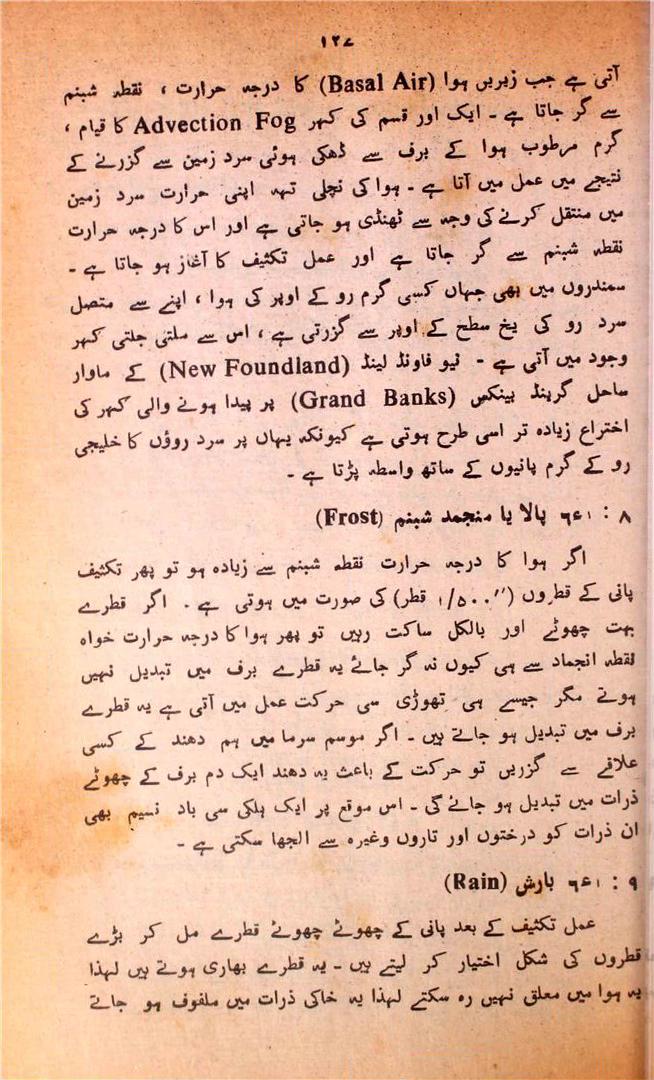 ۱۲۷
آتی ہے جب زیریں ہوا (Basal Air) کا درجہ حرارت ، نقطہ شبنم
سے گر جاتا ہے ۔ ایک اور قسم کی کہر Advection Fog کا قیام ،
گرم مرطوب ہوا کے برف سے ڈھکی ہوئی سرد زمین سے گزرنے کے
نتیجے میں عمل میں آتا ہے ۔ ہوا کی نچلی تہہ اپنی حرارت سرد زمین
میں منتقل کرنے کی وجہ سے ٹھنڈی ہو جاتی ہے اور اس کا درجہ حرارت
نقطہ شبنم سے گر جاتا ہے اور عمل تکثیف کا آغاز ہو جاتا ہے ۔
سمندروں میں بھی جہاں کسی گرم رو کے اوپر کی ہوا ، اپنے سے متصل
سرد رو کی یخ سطح کے اوپر سے گزرتی ہے ، اس سے ملتی جلتی کہر
وجود میں آتی ہے ۔ نیو فاونڈ لینڈ (New Foundland) کے ماوار
ساحل گرینڈ بینکس (Grand Banks) پر پیدا ہونے والی کہر کی
اختراع زیادہ تر اسی طرح ہوتی ہے کیونکہ یہاں پر سرد روؤں کا خلیجی
رو کے گرم پانیوں کے ساتھ واسطہ پڑتا ہے ۔
۸ : ۶ء۱ پالا یا منجمد شبنم (Frost)
اگر ہوا کا درجہ حرارت نقطہ شبنم سے زیادہ ہو تو پھر تکثیف
پانی کے قطروں (″۱/۵۰۰ قطر) کی صورت میں ہوتی ہے ۔ اگر قطرے
بہت چھوٹے اور بالکل ساکت رہیں تو پھر ہوا کا درجہ حرارت خواہ
نقطہ انجماد سے ہی کیوں نہ گر جائے یہ قطرے برف میں تبدیل نہیں
ہوتے مگر جیسے ہی تھوڑی سی حرکت عمل میں آتی ہے یہ قطرے
برف میں تبدیل ہو جاتے ہیں ۔ اگر موسم سرما میں ہم دھند کے کسی
علاقے سے گزریں تو حرکت کے باعث یہ دھند ایک دم برف کے چھوٹے
ذرات میں تبدیل ہو جائے گی ۔ اس موقع پر ایک ہلکی سی باد نسیم بھی
ان ذرات کو درختوں اور تاروں وغیرہ سے الجھا سکتی ہے ۔
۹ : ۶ء۱ بارش (Rain)
عمل تکثیف کے بعد پانی کے چھوٹے چھوٹے قطرے مل کر بڑے
قطروں کی شکل اختیار کر لیتے ہیں ۔ یہ قطرے بھاری ہوتے ہیں لہذا
یہ ہوا میں معلق نہیں رہ سکتے لہذا یہ خاکی ذرات میں ملفوف ہو جاتے